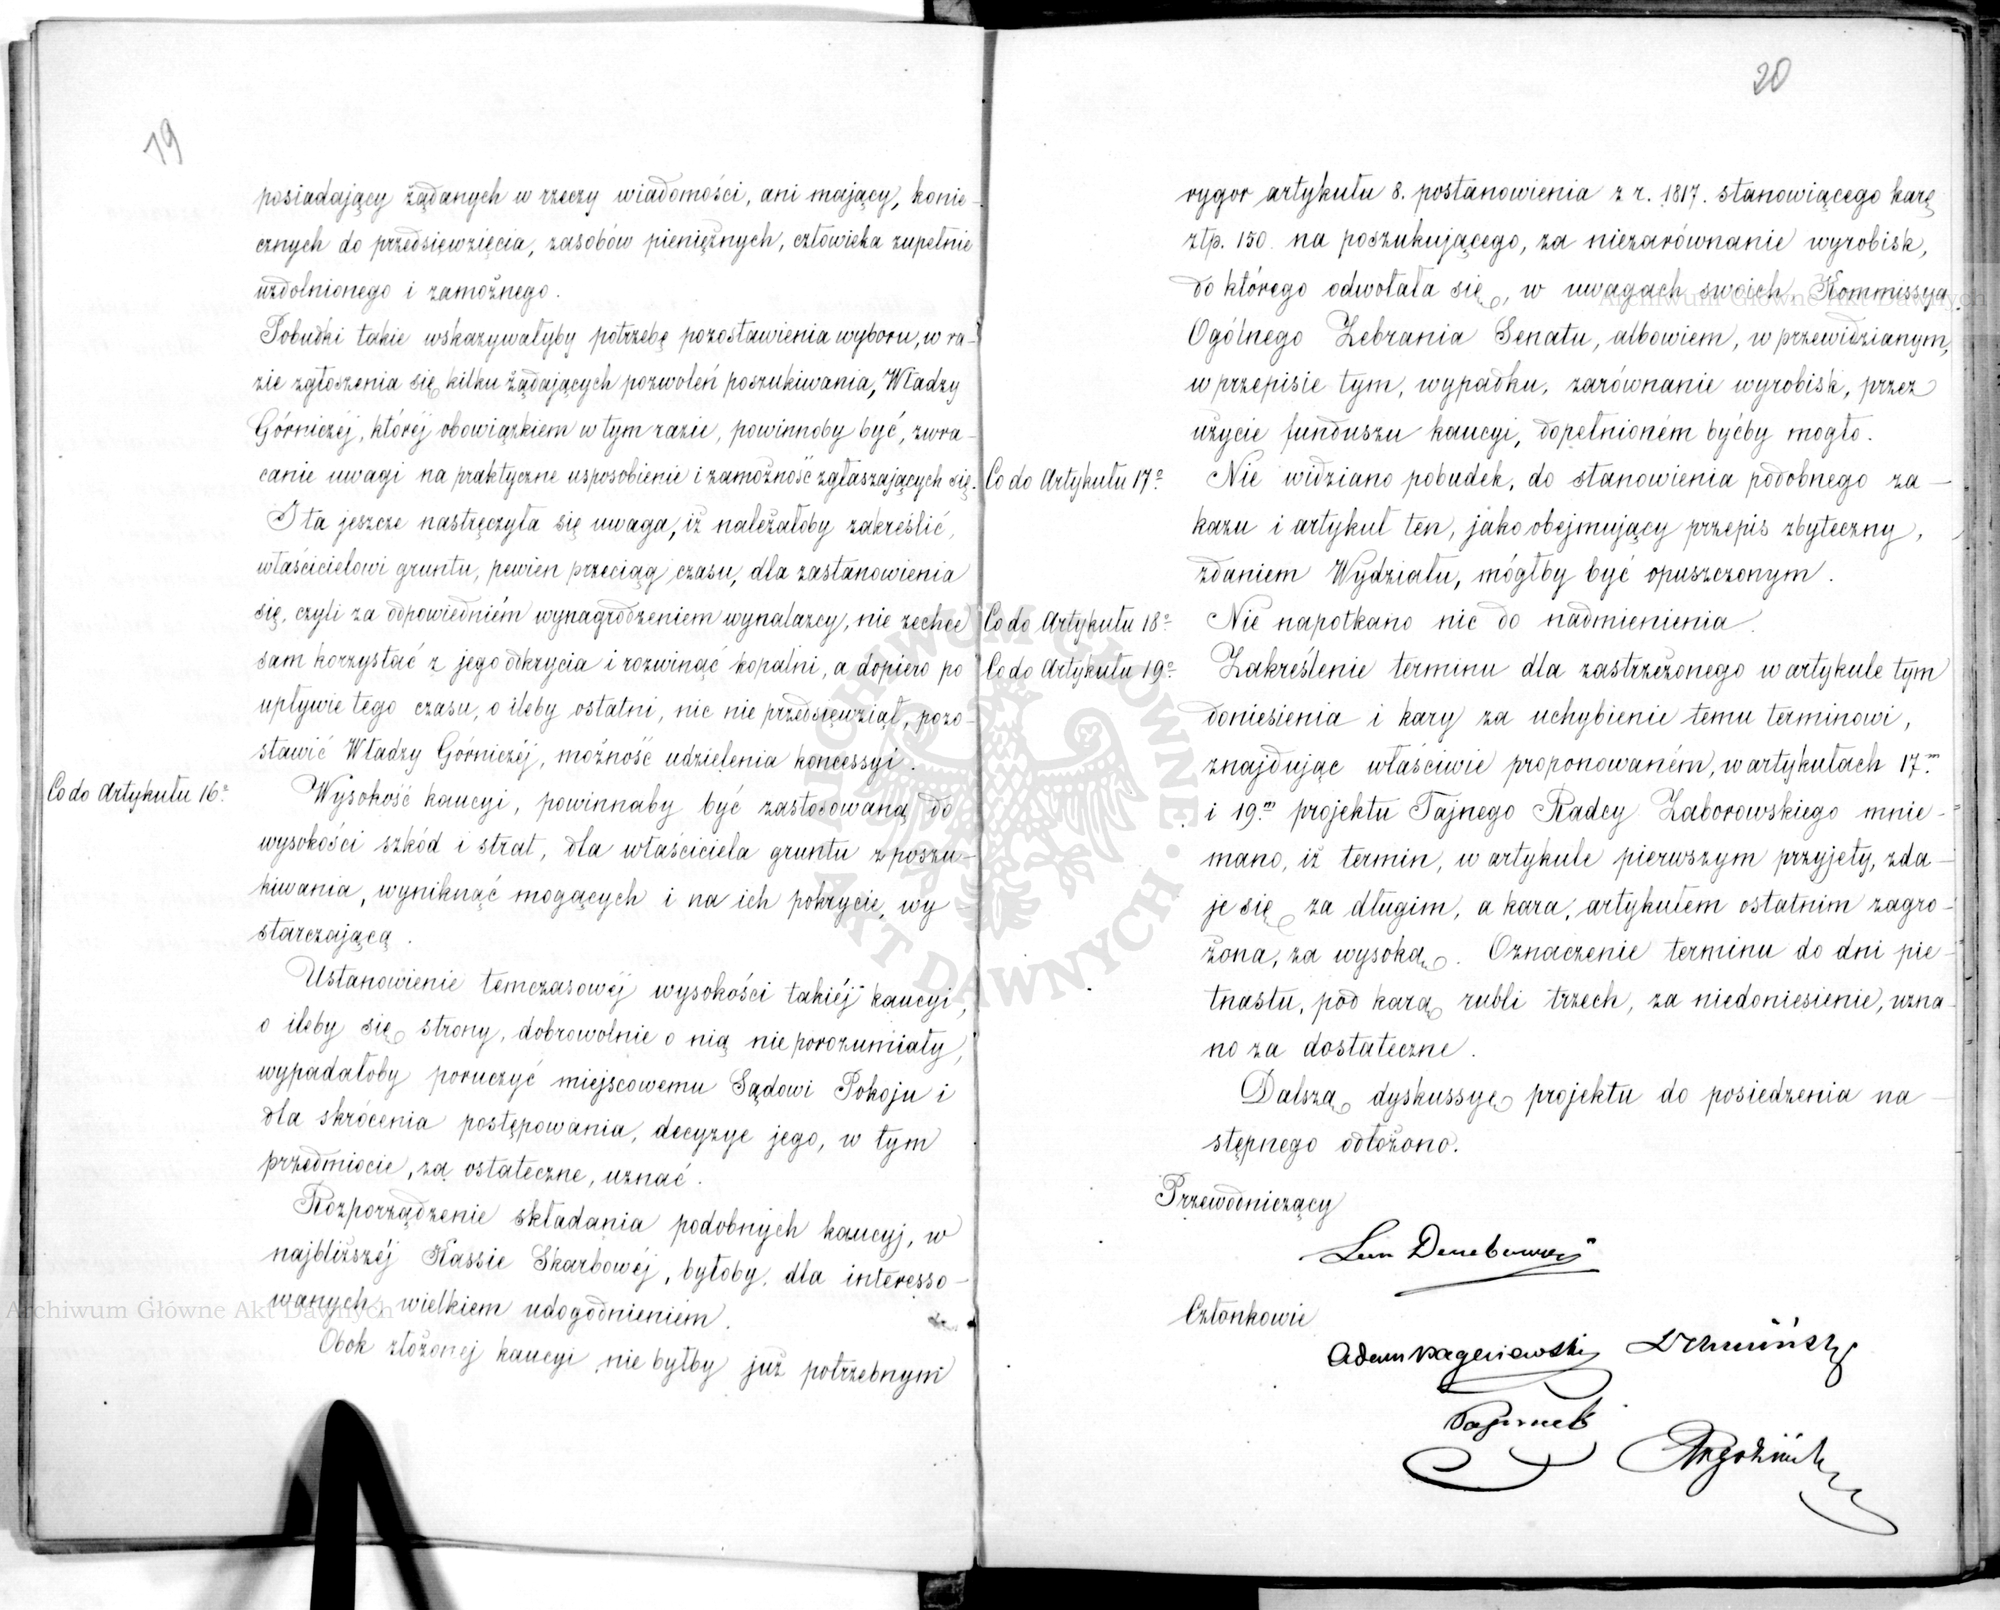 19
posiadający żądanych w rzeczy wiadomości, ani mający, konie-
cznych do przedsięwzięcia, zasobów pieniężnych, człowieka zupełnie
uzdolnionego i zamożnego.
Pobudki takie wskazywałyby potrzebę pozostawienia wyboru, w ra-
zie zgłoszenia się kilku żądających pozwoleń poszukiwania, Władzy
Górniczéj, któréj obowiązkiem w tym razie, powinnoby być, zwra-
canie uwagi na praktyczne usposobienie i zamożność zgłaszających się.
I ta jeszcze nastręczyła się uwaga, iż należałoby zakreślić,
właścicielowi gruntu, pewien przeciąg czasu, dla zastanowienia
się, czyli za odpowiedniém wynagrodzeniem wynalazcy, nie zechce
sam korzystać z jego odkrycia i rozwinąć kopalni, a dopiero po
upływie tego czasu, o ileby ostatni, nic nie przedsięwziął, pozo-
stawić Władzy Górniczéj, możność udzielenia koncessyi.
Co do Artykułu 16º
Wysokość kaucyi, powinnaby być zastosowaną do
wysokości szkód i strat, dla właściciela gruntu z poszu-
kiwania, wyniknąć mogących i na ich pokrycie, wy
starczającą.
Ustanowienie temczasowéj wysokości takiéj kaucyi,
o ileby się strony, dobrowolnie o nią nie porozumiały,
wypadałoby poruczyć miejscowemu Sądowi Pokoju i
dla skrócenia postępowania, decyzye jego, w tym
przedmiocie, za ostateczne, uznać.
Rozporządzenie składania podobnych kaucyj, w
najbliższéj Kassie Skarbowéj, byłoby, dla interesso-
wanych, wielkiem udogodnieniem.
Obok złożonej kaucyi nie byłby już potrzebnym
20
rygor artykułu 8. postanowienia z r. 1817. stanowiącego karę
złp. 150. na poszukującego, za niezarównanie wyrobisk,
do którego odwołała się, w uwagach swoich, Kommissya
Ogólnego Zebrania Senatu, albowiem, w przewidzianym,
w przepisie tym, wypadku, zarównanie wyrobisk, przez
użycie funduszu kaucyi, dopełnioném byćby mogło.
Co do Artykułu 17º
Nie widziano pobudek, do stanowienia podobnego za-
kazu i artykuł ten, jako obejmujący przepis zbyteczny,
zdaniem Wydziału, mógłby być opuszczonym.
Co do Artykułu 18º
Nie napotkano nic do nadmienienia.
Co do Artykułu 19º
Zakreślenie terminu dla zastrzeżonego w artykule tym
doniesienia i kary za uchybienie temu terminowi,
znajdując właściwie proponowaném, w artykułach 17.m
i 19.m projektu Tajnego Radcy Zaborowskiego mnie-
mano, iż termin, w artykule pierwszym przyjęty, zda-
je się za długim, a kara, artykułem ostatnim zagro-
żona, za wysoką. Oznaczenie terminu do dni pię-
tnastu, pod karą rubli trzech, za niedoniesienie, uzna-
no za dostateczne.
Dalszą dyskussyę projektu do posiedzenia na-
stępnego odłożono.
Przewodniczący
Członkowie
Adam
Archiwum Główne Akt Dawnych
Archiwum Główne Akt Dawnych
ARCHIWUM GŁÓWNE AKT DAWNYCH